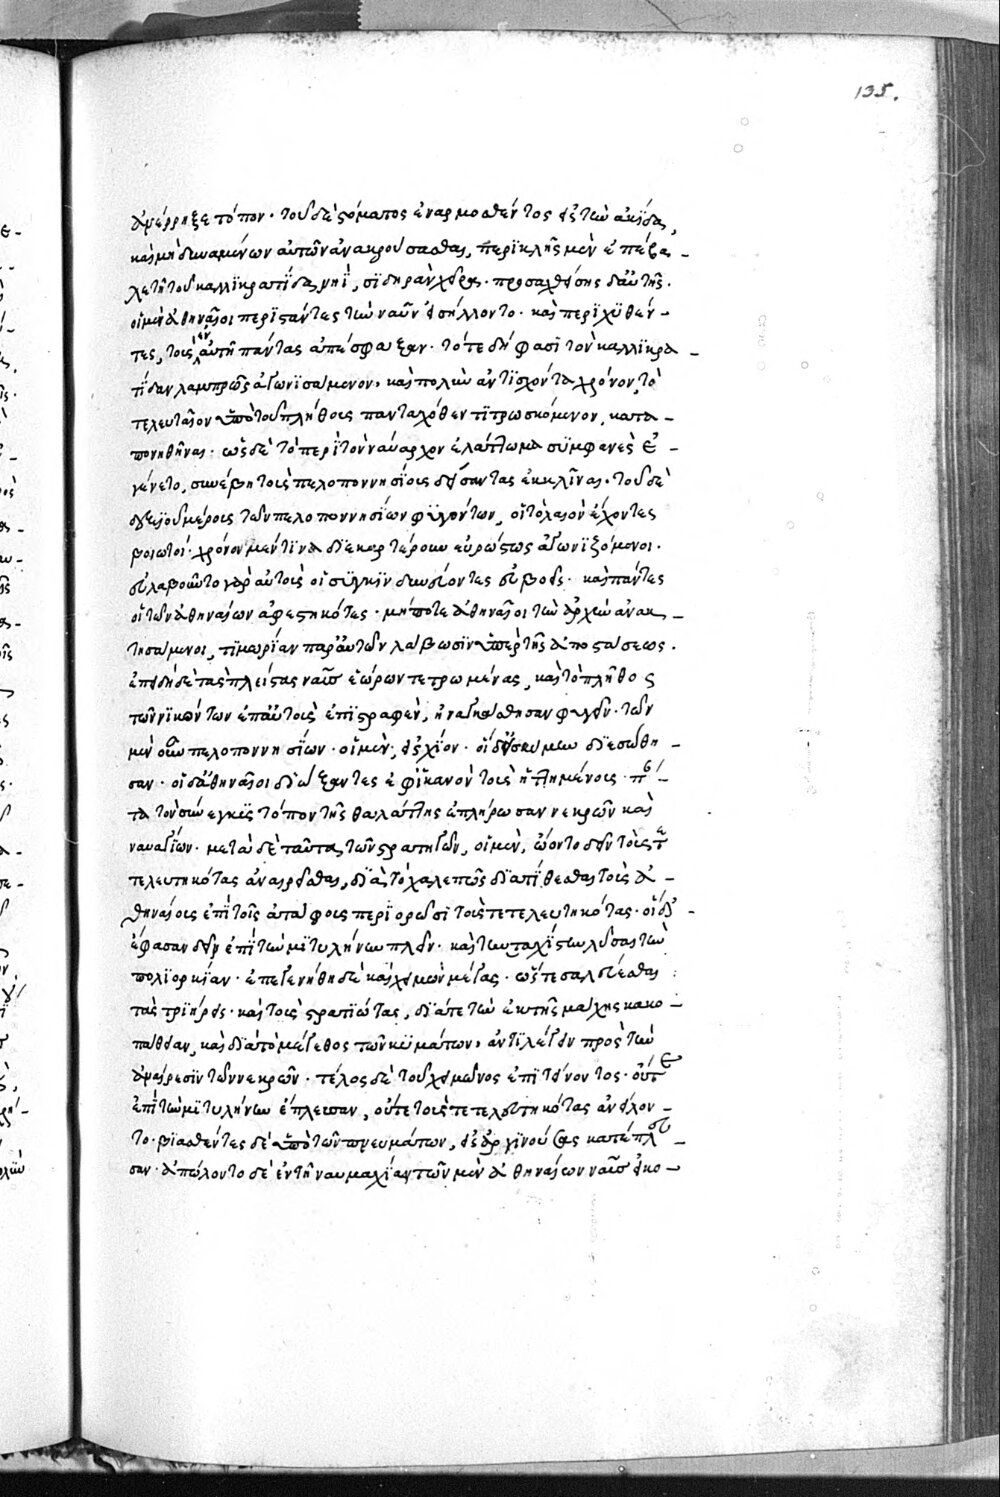 135.
ἀνέρρηξε τόπον· τοῦ δὲ στόματος ἐναρμοσθέντος εἰς τὴν ἀκίδα,
καὶ μὴ δυναμένων αὐτῶν ἀνακρούσασθαι, περικλῆς μὲν ἐπέβα-
λε τῆ τοῦ καλλικρατίδα νηῒ, σιδηρὰν χεῖρα· προσαχθείσης δ' αὐτῆς·
οἱ μὲν ἀθηναῖοι περιστάντες τὴν ναῦν εἰσήλλοντο· καὶ περιχυθέν-
τες, τοὺς ἐν αὐτῆ πάντας ἀπέσφαξαν· τότε δή φασι τὸν καλλικρα
τίδαν λαμπρῶς ἀγωνισάμενον, καὶ πολὺν ἀντισχόντα χρόνον, τὸ
τελευταῖον ὑπὸ τοῦ πλήθους πανταχόθεν τιτρωσκόμενον, κατα-
πονηθῆναι· ὡς δὲ τὸ περὶ τὸν ναύαρχον ἐλάττωμα συμφανὲς ἐ-
γένετο, συνέβη τοὺς πελοποννησίους δείσαντας ἐκκλῖναι· τοῦ δὲ
δεξιοῦ μέρους τῶν πελοποννησίων φυγόντων, οἱ τὸ λαιὸν ἔχοντες
βοιωτοί· χρόνον μέν τινα διεκαρτέρουν εὐρώστως ἀγωνιζόμενοι·
εὐλαβοῦντο γὰρ αὐτοὶ οἱ συγκινδυνεύοντες εὐβοεῖς· καὶ πάντες
οἱ τῶν ἀθηναίων ἀφεστηκότες· μήποτε ἀθηναῖοι τὴν ἀρχὴν ἀνακ-
τησάμενοι, τιμωρίαν παρ' αὐτῶν λάβωσιν ὑπὲρ τῆς ἀποστάσεως·
ἐπειδὴ δὲ τὰς πλείστας ναῦς ἑώρων τετρωμένας, καὶ τὸ πλῆθος
τῶν νικώντων ἐπ' αὐτοὺς ἐπιστραφὲν, ἠναγκάσθησαν φυγεῖν· τῶν
μὲν οὖν πελοποννησίων· οἱ μὲν, εἰς χίον· οἱ δ' εἰς κύμην διεσώθη-
σαν· οἱ δ' ἀθηναῖοι διώξαντες ἐφ' ἱκανὸν τοὺς ἡττημένους· πά-
τα τὸν σύνεγγυς τόπον τῆς θαλάττης ἐπλήρωσαν νεκρῶν καὶ
ναυαγίων· μετὰ δὲ ταῦτα τῶν στρατηγῶν, οἱ μὲν, ᾤοντο δεῖν τοὺς τε
τελευτηκότας ἀναιρεῖσθαι, διὰ τὸ χαλεπῶς διατίθεσθαι τοὺς ἀ-
θηναίους ἐπὶ τοῖς ἀτάφους περιορῶσι τοὺς τετελευτηκότας· οἱ δ'
ἔφασαν δεῖν ἐπὶ τὴν μιτυλήνην πλεῖν· καὶ τὴν ταχίστην λῦσαι τὴν
πολιορκίαν· ἐπεγενήθη δὲ καὶ χειμὼν μέγας· ὥστε σαλεύεσθαι
τὰς τριήρεις· καὶ τοὺς στρατιώτας, διά τε τὴν ἐκ τῆς μάχης κακο-
πάθειαν, καὶ διὰ τὸ μέγεθος τῶν κυμάτων, ἀντιλέγειν πρὸς τὴν
ἀναίρεσιν τῶν νεκρῶν· τέλος δὲ τοῦ χειμῶνος ἐπιτείνοντος· οὔτε
ἐπὶ τὴν μιτυλήνην ἔπλευσαν, οὔτε τοὺς τετελευτηκότας ἀνείλον-
το· βιασθέντες δὲ ὑπὸ τῶν πνευμάτων, εἰς ἀργινούσας κατέπλευ-
σαν· ἀπώλοντο δὲ ἐν τῆ ναυμαχία, τῶν μὲν ἀθηναίων ναῦς εἰκο-